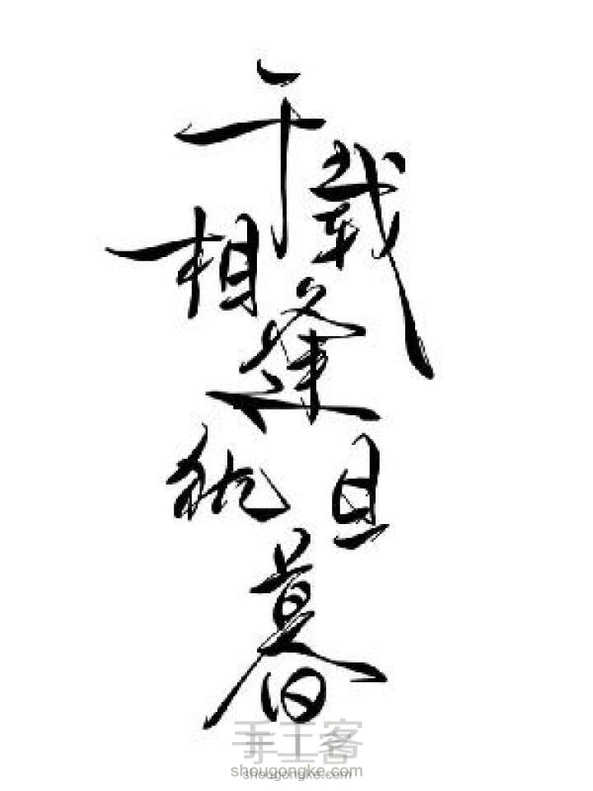 千载
相逢
犹旦
暮
手工客
shougongke.com